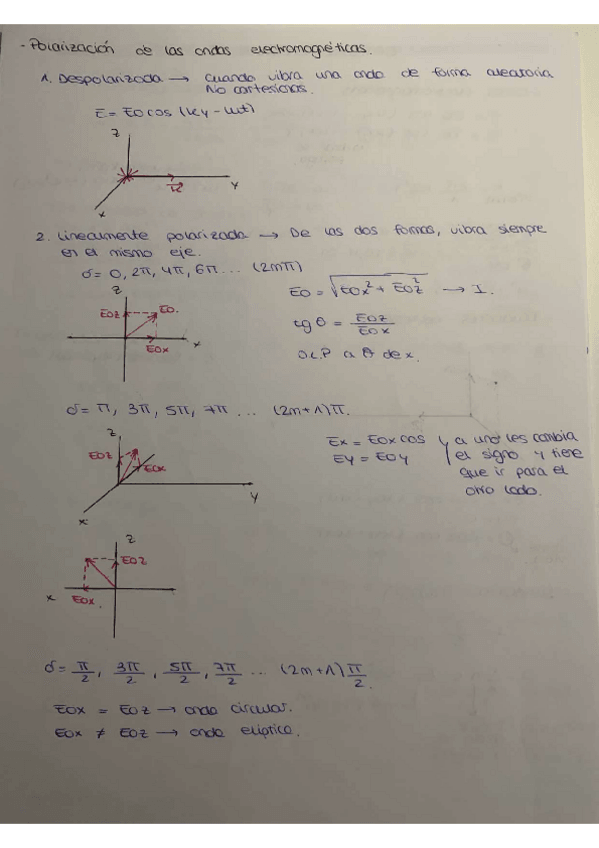 - Polarización de las ondas electromagnéticas.
1. Despolarizada → Cuando vibra una onda de forma aleatoria
No cortesionas.
E = E0 cos (ky - wt)
z
x
k
y
2. Linealmente polarizada → De las dos formas, vibra siempre
en el mismo eje.
δ = 0, 2π, 4π, 6π ... (2mπ)
z
E0z
E0.
E0x
x
E0 = √E0x² + E0z² → I.
tg θ = E0z / E0x
O.L.P a θ de x.
δ = π, 3π, 5π, 7π ... (2m+1)π.
z
E0z
E0x
y
x
Ex = E0x cos y a uno les cambia
Ey = E0y el signo y tiene
que ir para el
otro lado.
z
E0z
x
E0x.
δ = π/2, 3π/2, 5π/2, 7π/2 ... (2m+1) π/2.
E0x = E0z → onda circular.
E0x ≠ E0z → onda elíptica.